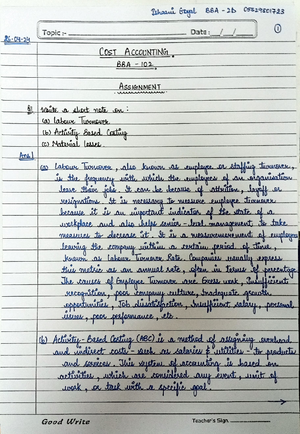 Ishaani Goyal BBA - 2D
25-04-24
Topic:-
Date: / /
1
COST ACCOUNTING.
BBA - 102
ASSIGNMENT
Write a short note on :
(a) Labour Turnover
(b) Activity Based Costing
(c) Material Losses.
Ans)
(a) Labour Turnover, also known as employee or staffing turnover
is the frequency with which the employees of an organisation
leave their job. It can be because of attrition, layoff or
resignations. It is necessary to measure employee turnover
because it is an important indicator of the state of a
workplace and also helps senior-level management to take
measures to decrease it. It is a measurement of employees
leaving the company within a certain period of time,
known as Labour Turnover Rate. Companies usually express
this metric as an annual rate, often in terms of percentage.
The causes of Employee Turnover are Excess work, Insufficient
recognition, poor company culture, Inadequate growth
opportunities, Job dissatisfaction, insufficient salary, personal
issues, poor performance, etc.
(b) Activity-Based Costing (ABC) is a method of assigning overhead
and indirect costs - such as salaries & utilities - to products
and services. This system of accounting is based on
activities, which are considered any event, unit of
work, or task with a specific goal.
Good Write
Teacher's Sign.